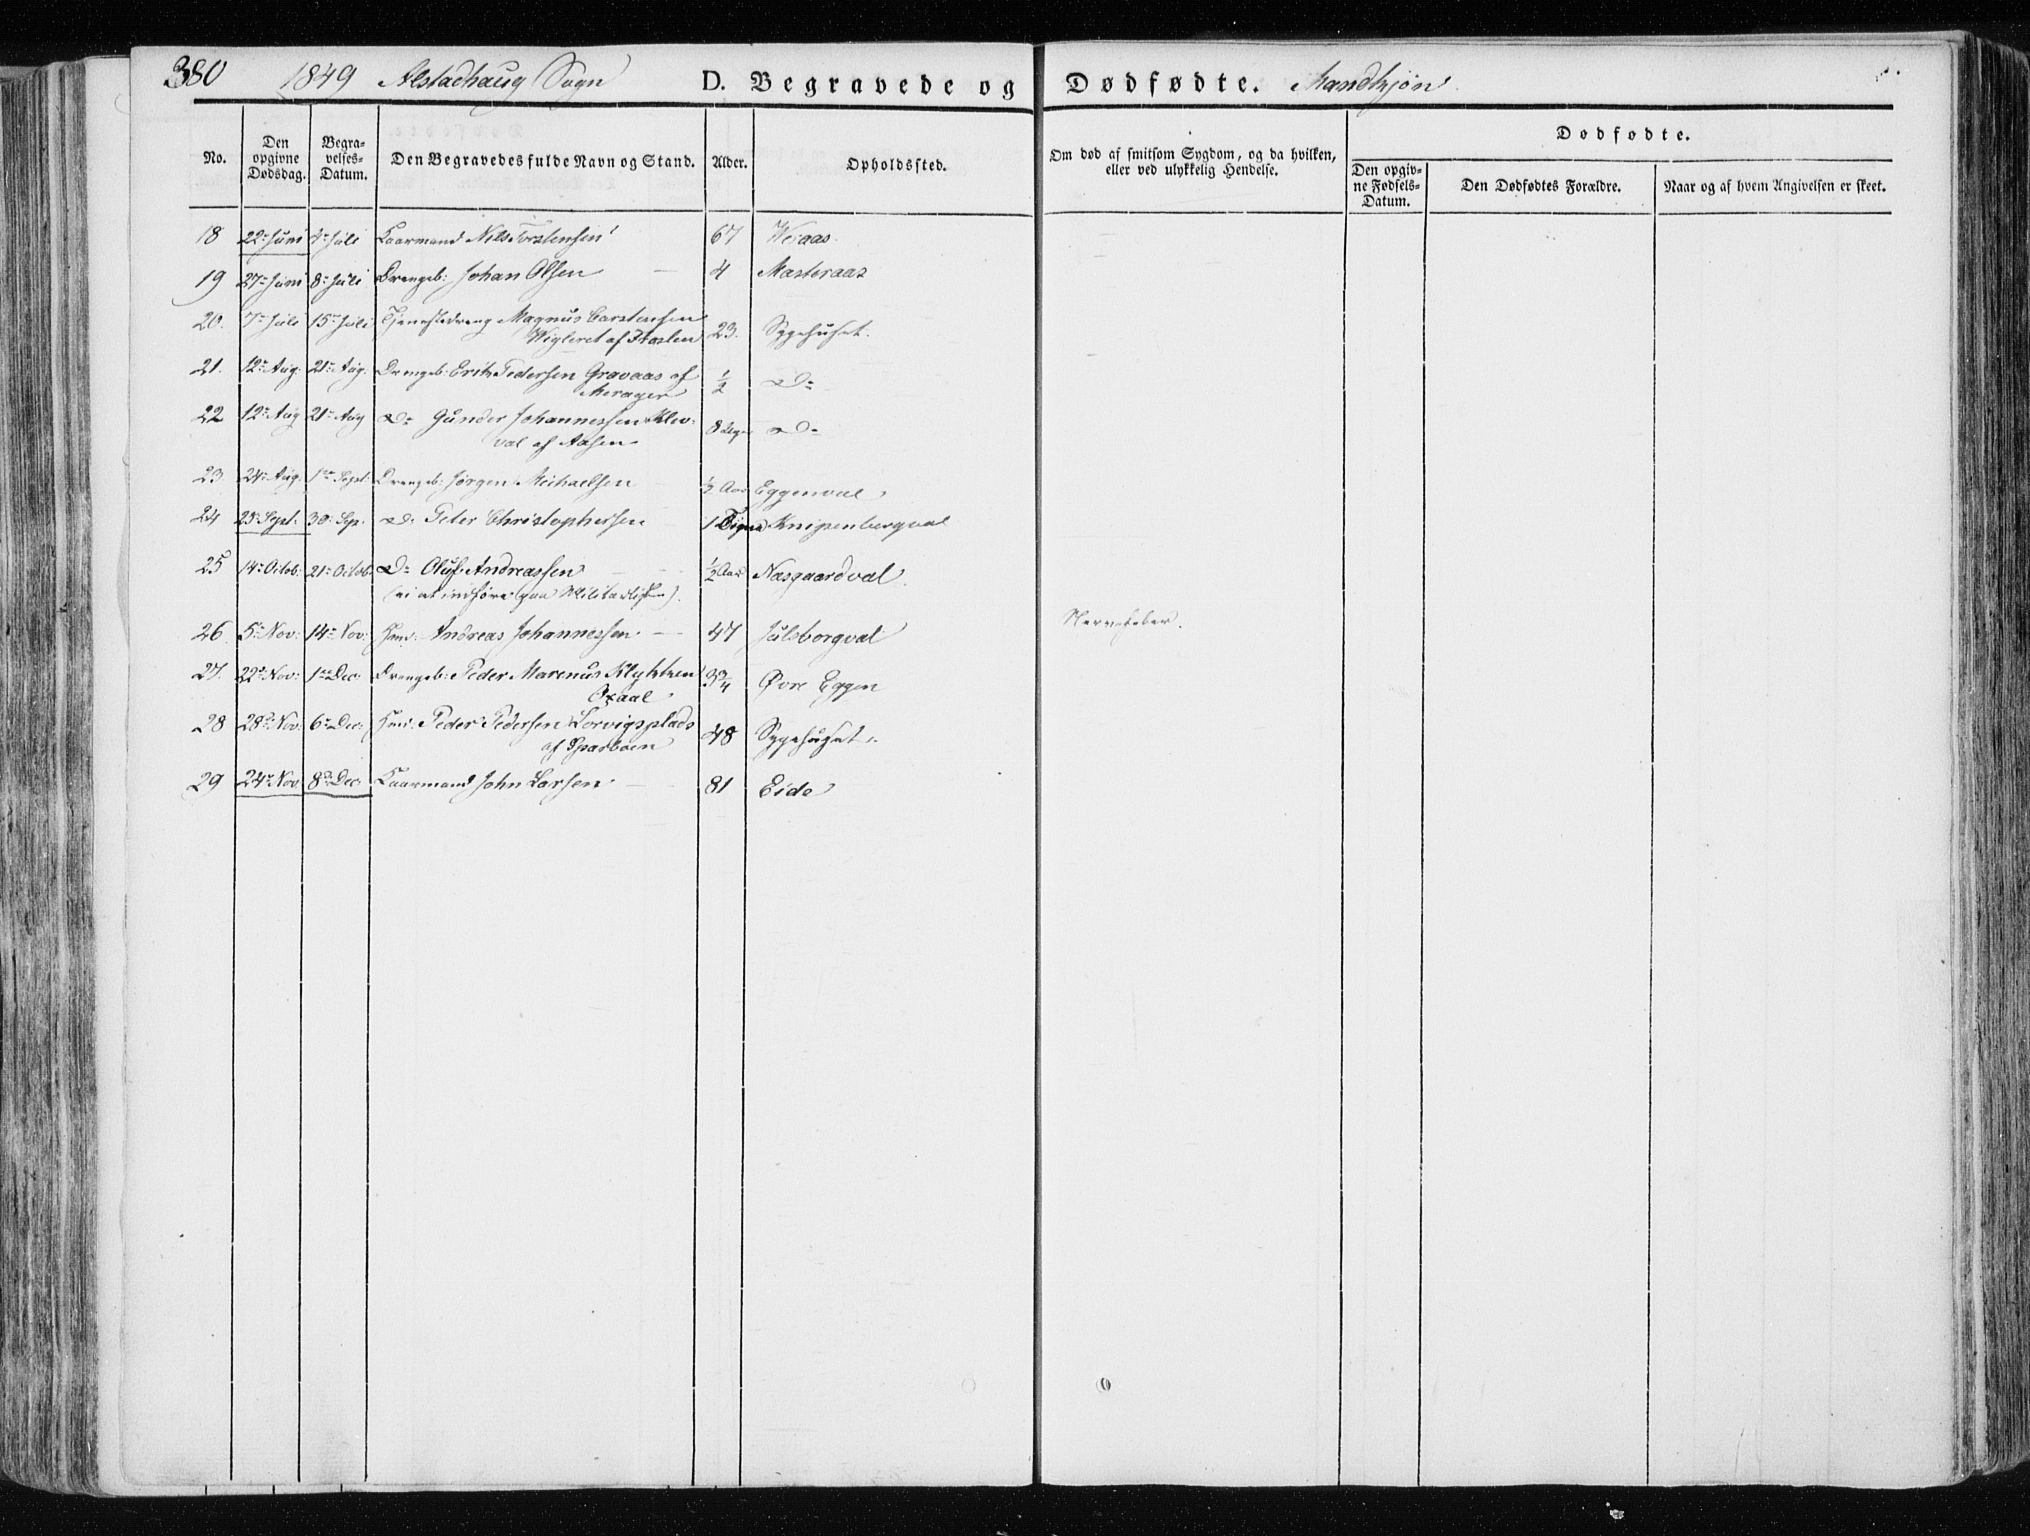 380 1849 Alstadhaug Sogn D. Begravede og Dødfødte. Mandkjøn
No. Den opgivne Dødsdag. Begravelses-Datum. Den Begravedes fulde Navn og Stand. Alder. Opholdssted. Om død af smitsom Sygdom, og da hvilken, eller ved ulykkelig Hendelse. Dødfødte.
Den opgivne Fødsels-Datum. Den Dødfødtes Forældre. Naar og af hvem Angivelsen er skeet.
18 22 Juni 4 Juli Kaarmand Nils Torstensen 67
19 27 Juni 8 Juli Drengeb: Johan Olsen 4 Masteraas
20. 7 Juli 15 Juli Tjenestedreng Magnus Carstensen 23. Sygehuset.
Wigleret af
21. 12 Aug: 21 Aug: Drengeb: Erik Pedersen Gravaas af ½ Do
Merager
22 12 Aug 21 Aug Do Gunder Johannessen Klev- 8 Do
val af Aasen
23 24 Aug. 1 Sept: Drengeb: Jørgen Michaelsen ½ Aar Eggenval
24 23 Sept: 30 Sep. Do Peter Christophersen 1 Knipenbergval
25 14 Octob: 21 Octob. Do Oluf Andreassen ½ Aar Næsgaardval
(ei at indføre paa Militærlisten).
26 5 Nov: 14 Nov: Huus: Andreas Johannessen 47 Julsborgval Nervefeber.
27. 22 Nov: 1 Dec: Drengeb: Peder Marenus 3¾ Øvre Eggen
Oxaal
28 28 Nov: 6 Dec: Huus: Peder Pedersen Lorvigsplads 48 Sygehuset
af Sparboen
29 24 Nov 8 Dec: Kaarmand John Larsen 81 Eide